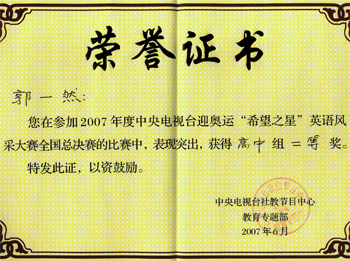 荣誉证书
郭一然:
您在参加2007年度中央电视台迎奥运“希望之星”英语风
采大赛全国总决赛的比赛中，表现突出，获得高中组二等奖。
特发此证，以资鼓励。
中央电视台社教节目中心
教育专题部
2007年6月